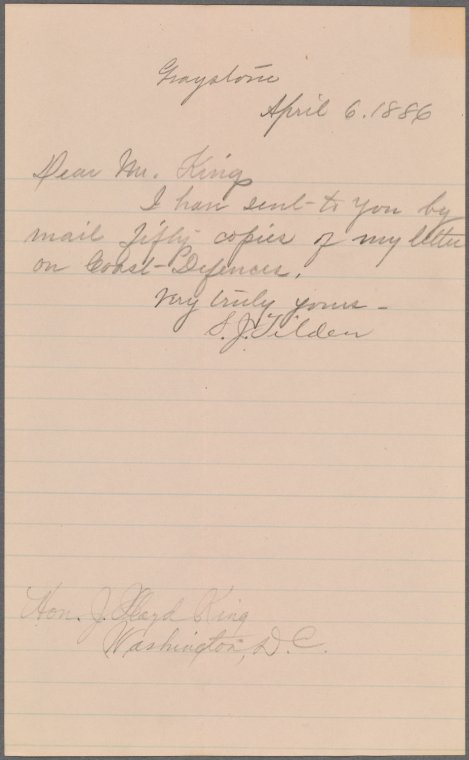 Graystone
April 6. 1886
Dear Mr. King
I have sent to you by
mail fifty copies of my letter
on Coast-Defences.
Very truly yours -
S. J. Tilden
Hon. J. Floyd King
Washington, D. C.